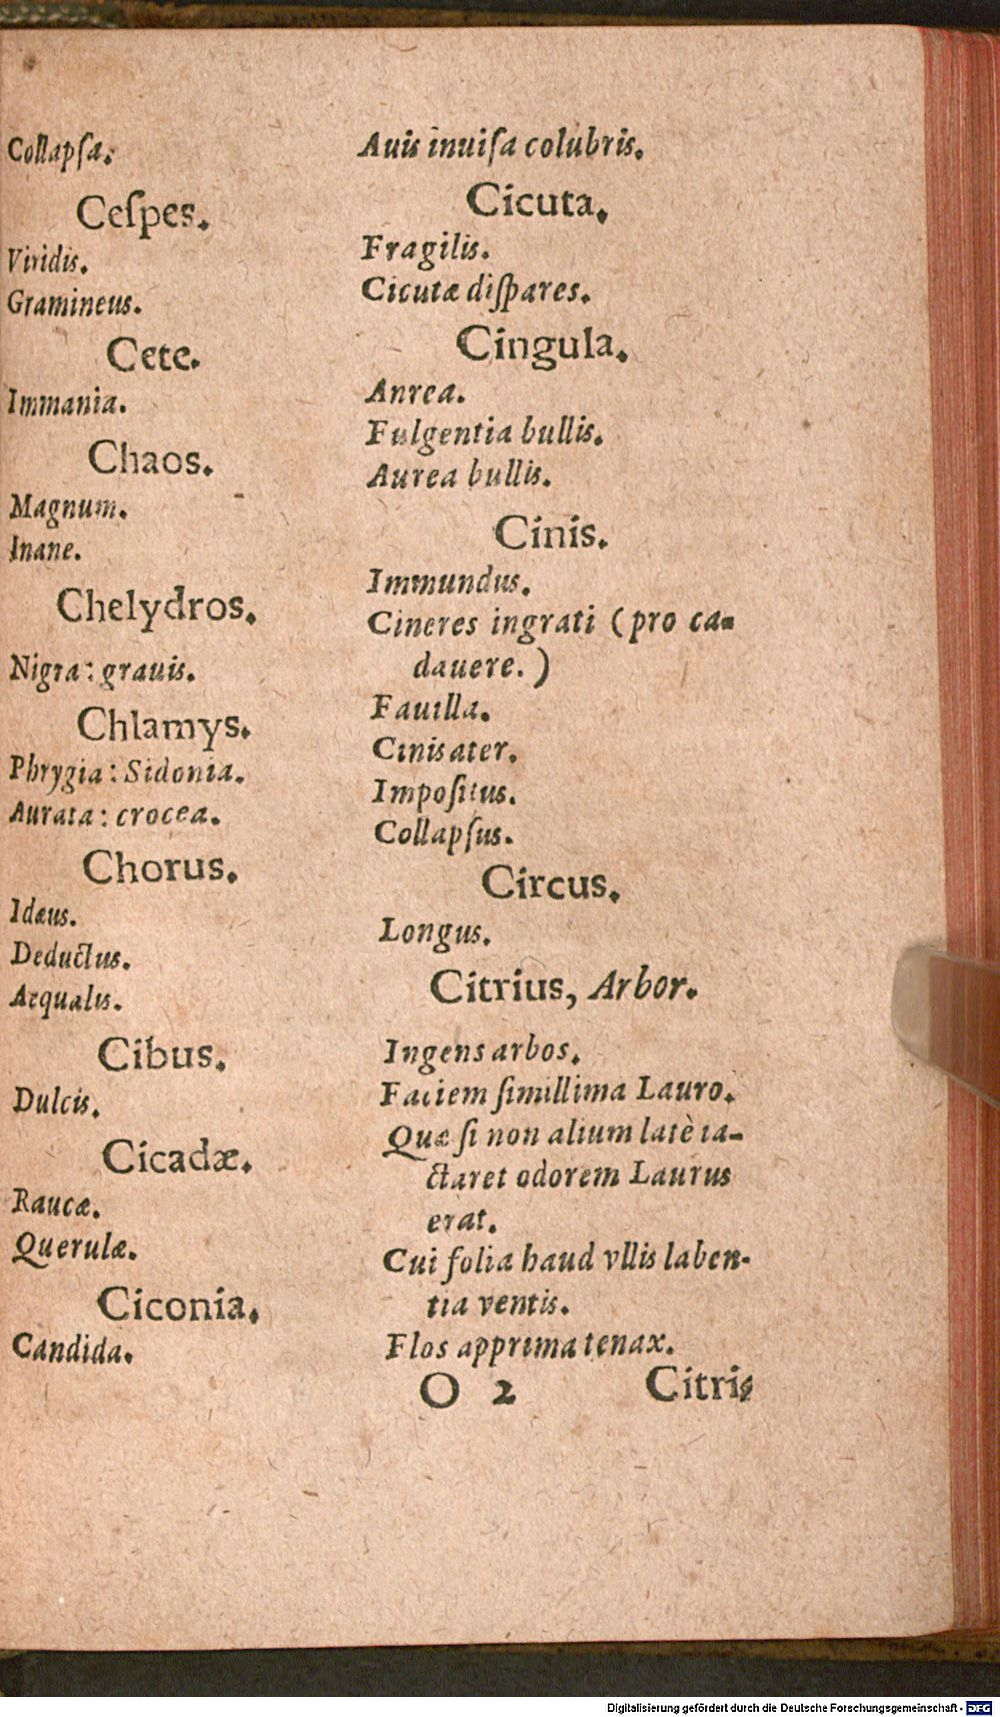 Collapſa.
Ceſpes.
Viridis.
Gramineus.
Cete.
Immania.
Chaos.
Magnum.
Inane.
Chelydros.
Nigra: grauis.
Chlamys.
Phrygia: Sidonia.
Aurata: crocea.
Chorus.
Idæus.
Deductus.
Aequalis.
Cibus.
Dulcis.
Cicadæ.
Raucæ.
Querulæ.
Ciconia.
Candida.
Auis inuiſa colubris.
Cicuta.
Fragilis.
Cicutæ diſpares.
Cingula.
Anrea.
Fulgentia bullis.
Aurea bullis.
Cinis.
Immundus.
Cineres ingrati (pro ca-
dauere.)
Fauilla.
Cinis ater.
Impoſitus.
Collapſus.
Circus.
Longus.
Citrius, Arbor.
Ingens arbos.
Faciem ſimillima Lauro.
Quæ ſi non alium latè ia-
ctaret odorem Laurus
erat.
Cui folia haud vllis laben-
tia ventis.
Flos apprima tenax.
O 2 Citri-
Digitalisierung gefördert durch die Deutsche Forschungsgemeinschaft - DFG